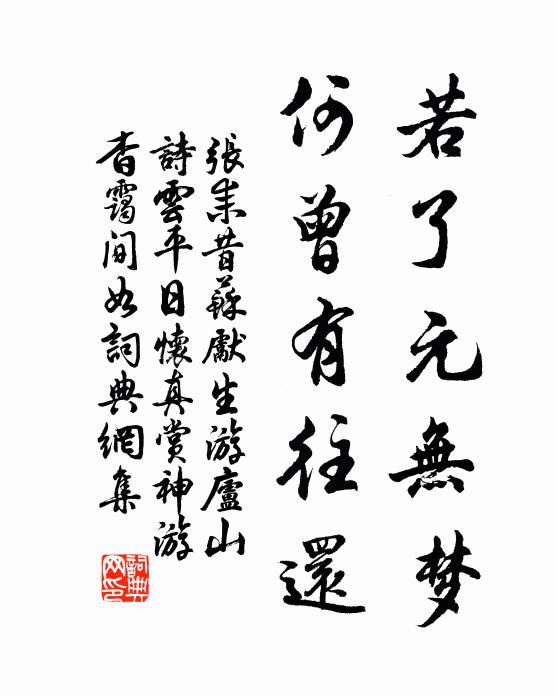 若了元無梦
何曾有往還
張耒昔蘇献生游廬山
詩雲平日懷真賞神游
杳靄间如詞典網集
詞典網印